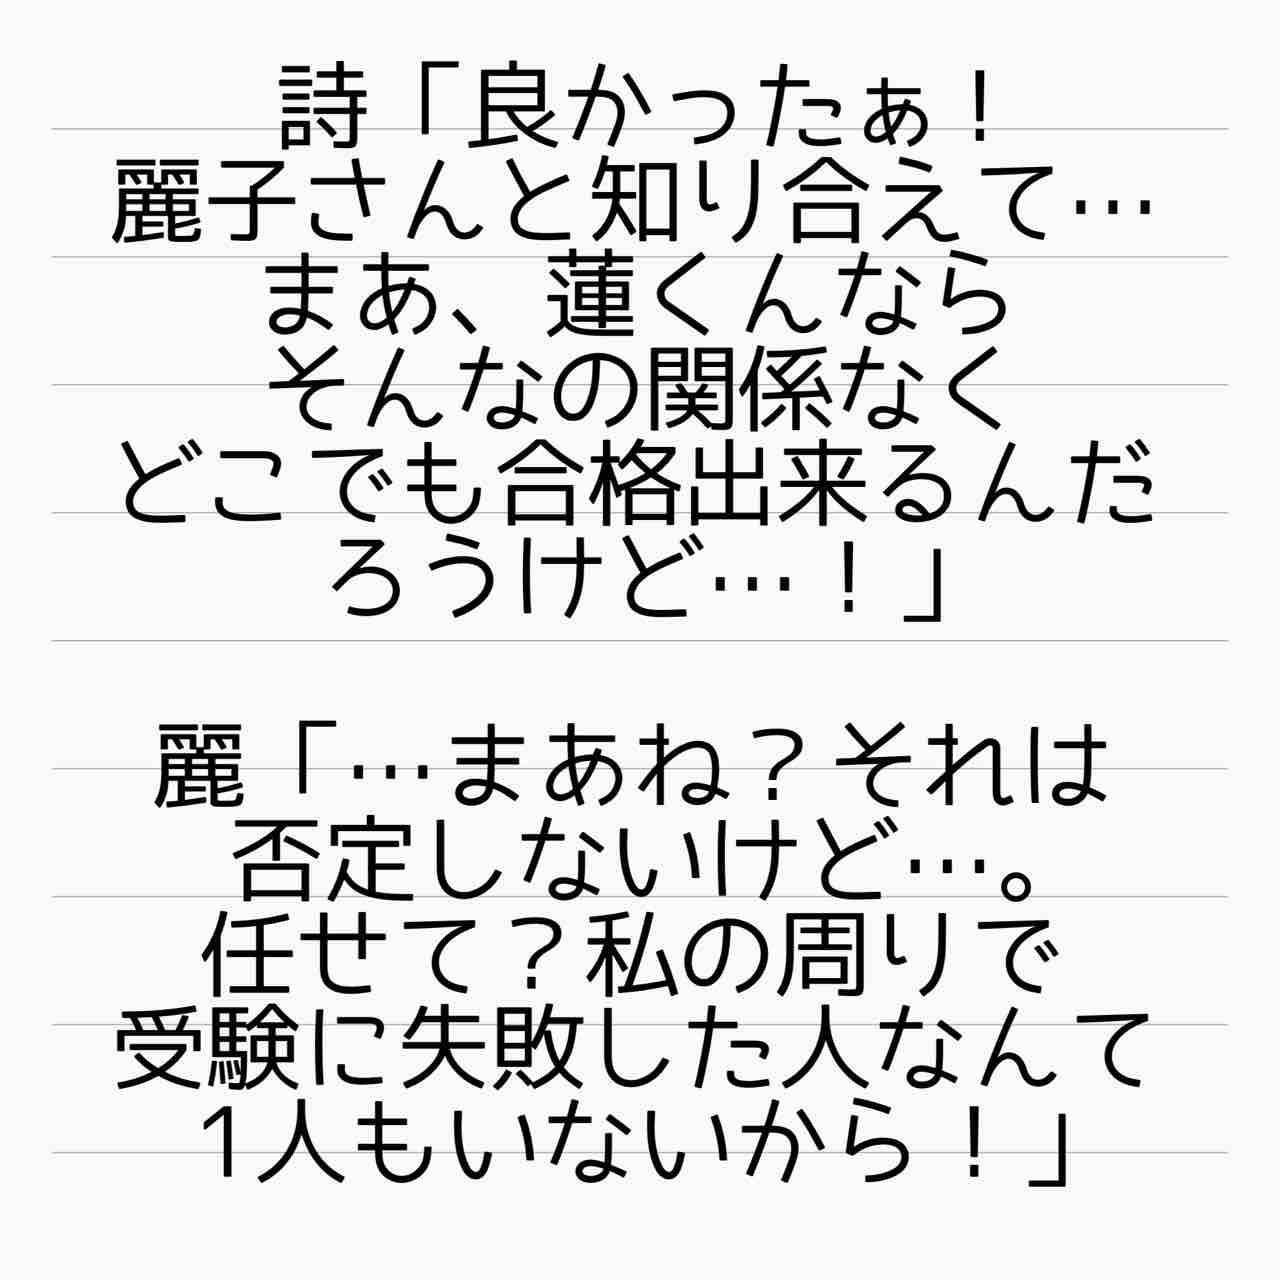 詩「良かったぁ！
麗子さんと知り合えて…
まあ、蓮くんなら
そんなの関係なく
どこでも合格出来るんだ
ろうけど…！」
麗「…まあね？それは
否定しないけど…。
任せて？私の周りで
受験に失敗した人なんて
1人もいないから！」